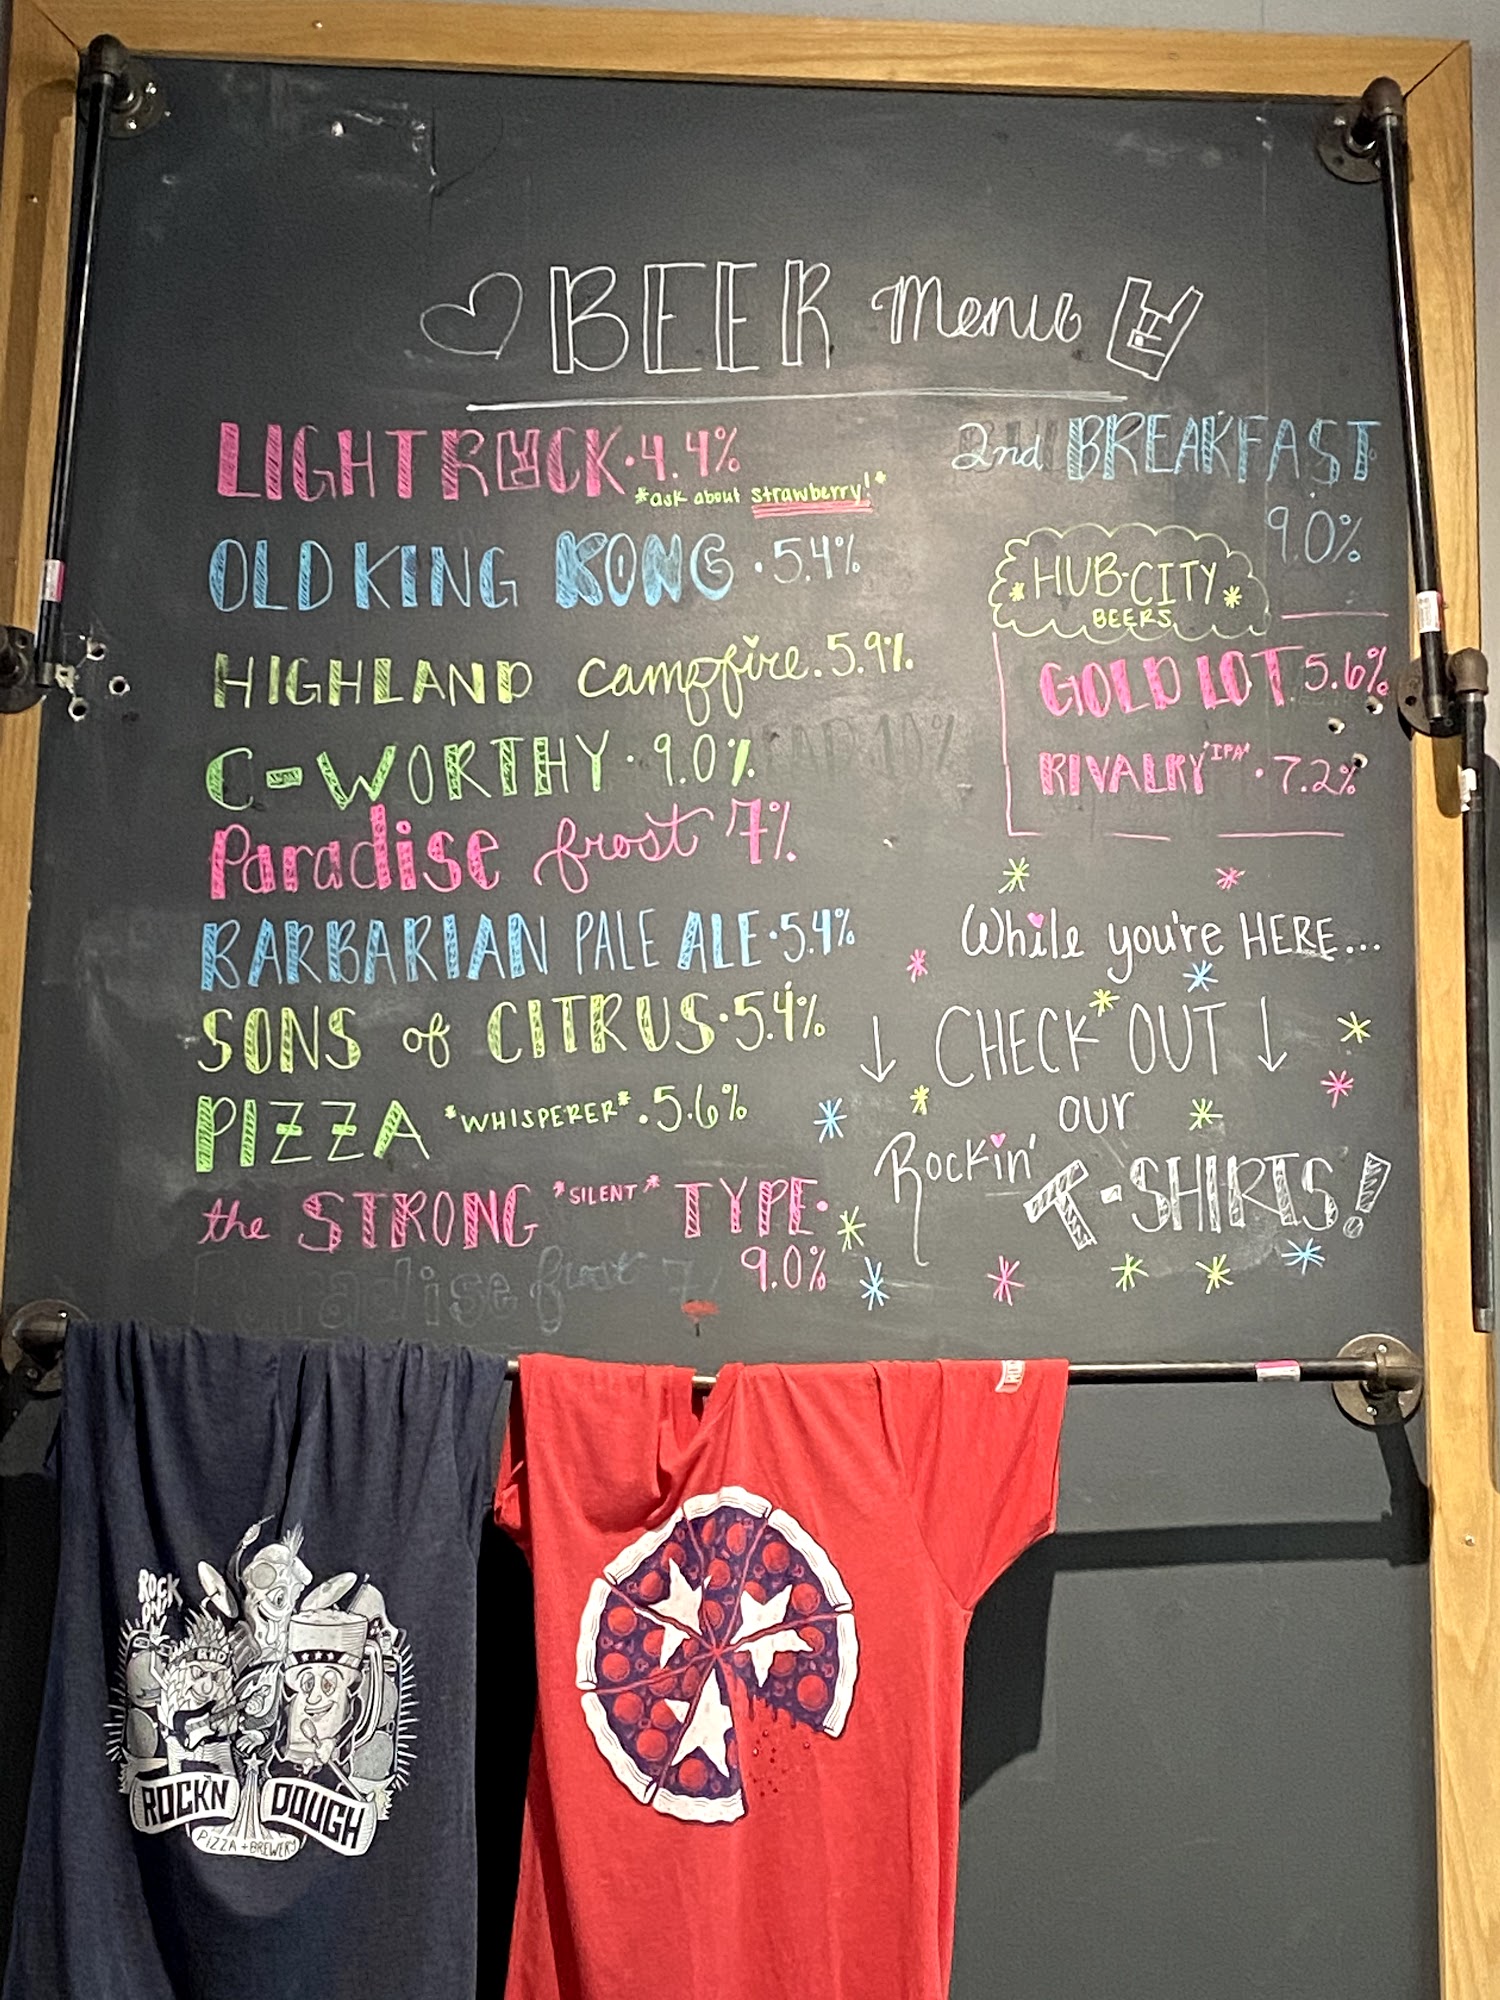 BEER Menu
LIGHT ROCK · 4.4%
*ask about strawberry!*
OLD KING KONG · 5.4%
HIGHLAND campfire · 5.9%
C-WORTHY · 9.0%
Paradise frost 7%
BARBARIAN PALE ALE · 5.4%
SONS of CITRUS · 5.4%
PIZZA *WHISPERER* · 5.6%
the STRONG *SILENT* TYPE ·
9.0%
Paradise frost 7
2nd BREAKFAST
9.0%
*HUB-CITY*
BEERS
GOLD LOT 5.6%
RIVALRY "IPA" · 7.2%
While you're HERE...
↓ CHECK OUT ↓
our
Rockin' T-SHIRTS!
ROCK
ON!
RND
ROCK'N DOUGH
PIZZA + BREWERY